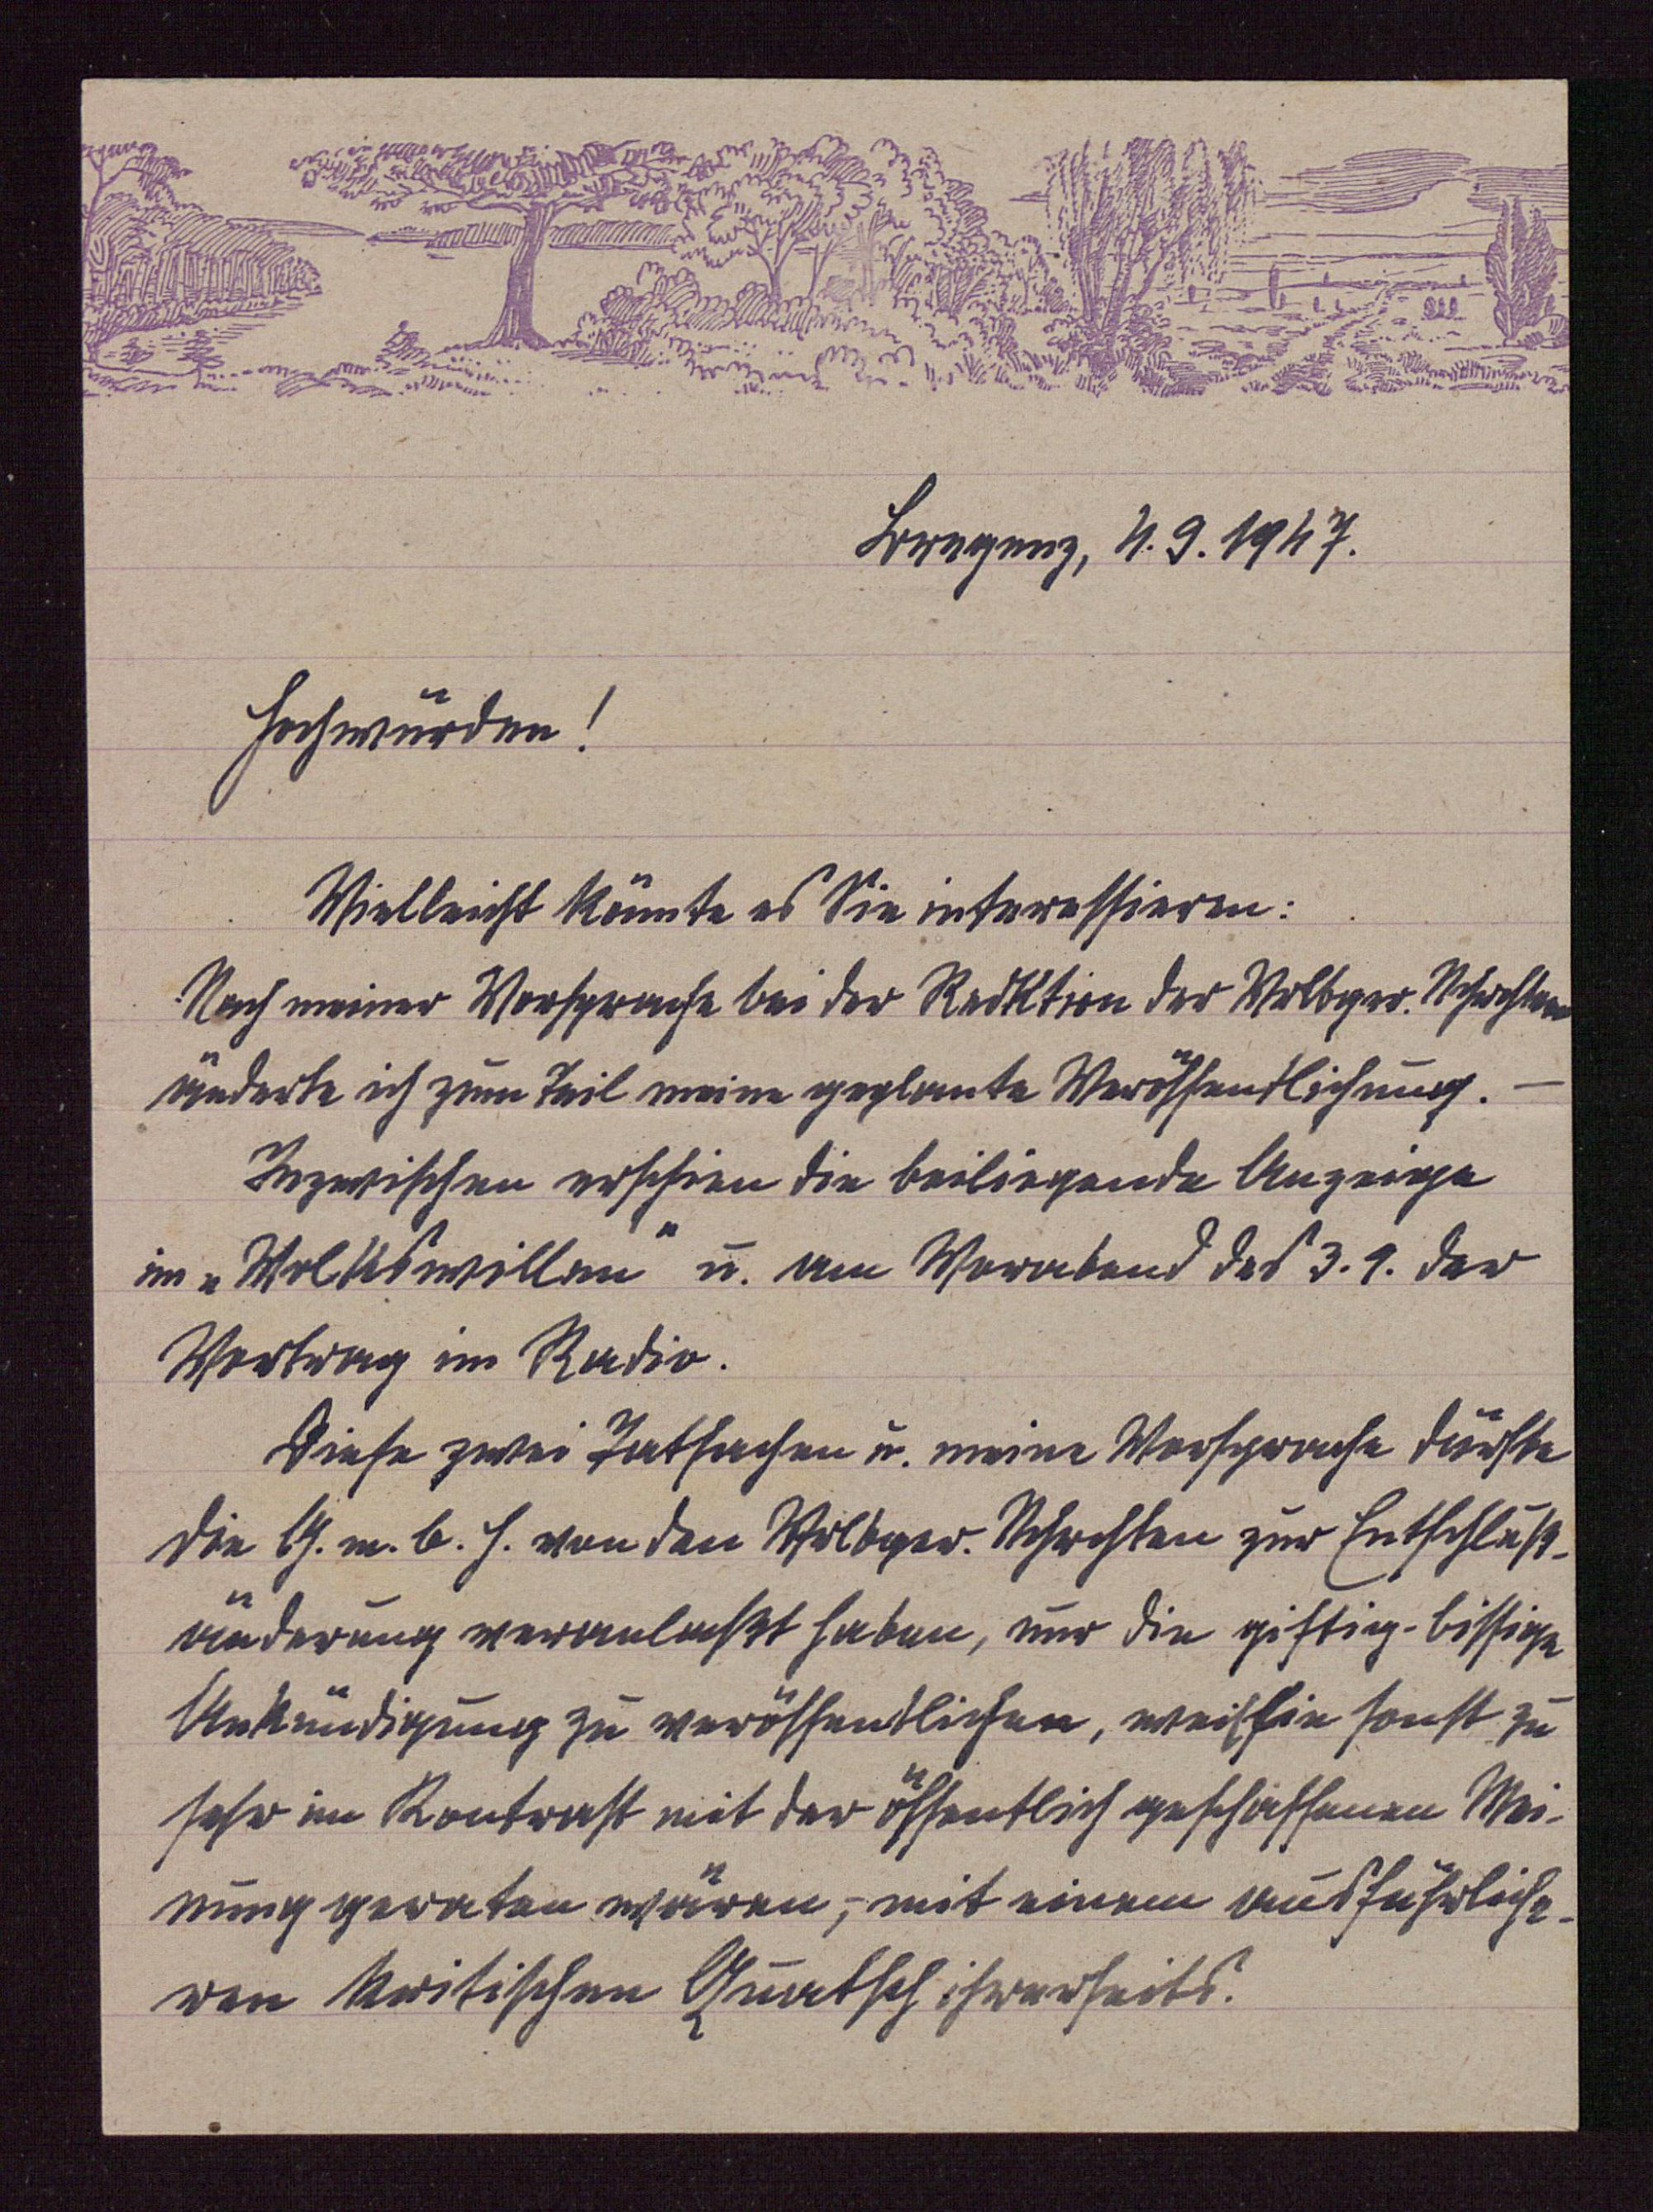 Bregenz, 4. 9. 1947.
Hochwürden!
Vielleicht könnte es Sie interessieren:
Nach meiner Vorsprache bei der Redktion der Vrlbger. Nchrchten
änderte ich zum Teil meine geplante Veröffentlichung. —
Inzwischen erschien die beiliegende Anzeige
im „Volkswillen" u. am Vorabend des 3. 9. der
Vortrag im Radio.
Diese zwei Tatsachen u. meine Vorsprache dürfte
die G. m. b. H. von den Vrlbger. Nchrchten zur Entschluß-
änderung veranlaßt haben, nur die giftig-bissige
Ankündigung zu veröffentlichen, weil sie sonst zu
sehr im Kontrast mit der öffentlich geschaffenen Mei-
nung geraten wären, – mit einem ausführliche-
ren kritischen Quatsch ihrerseits.